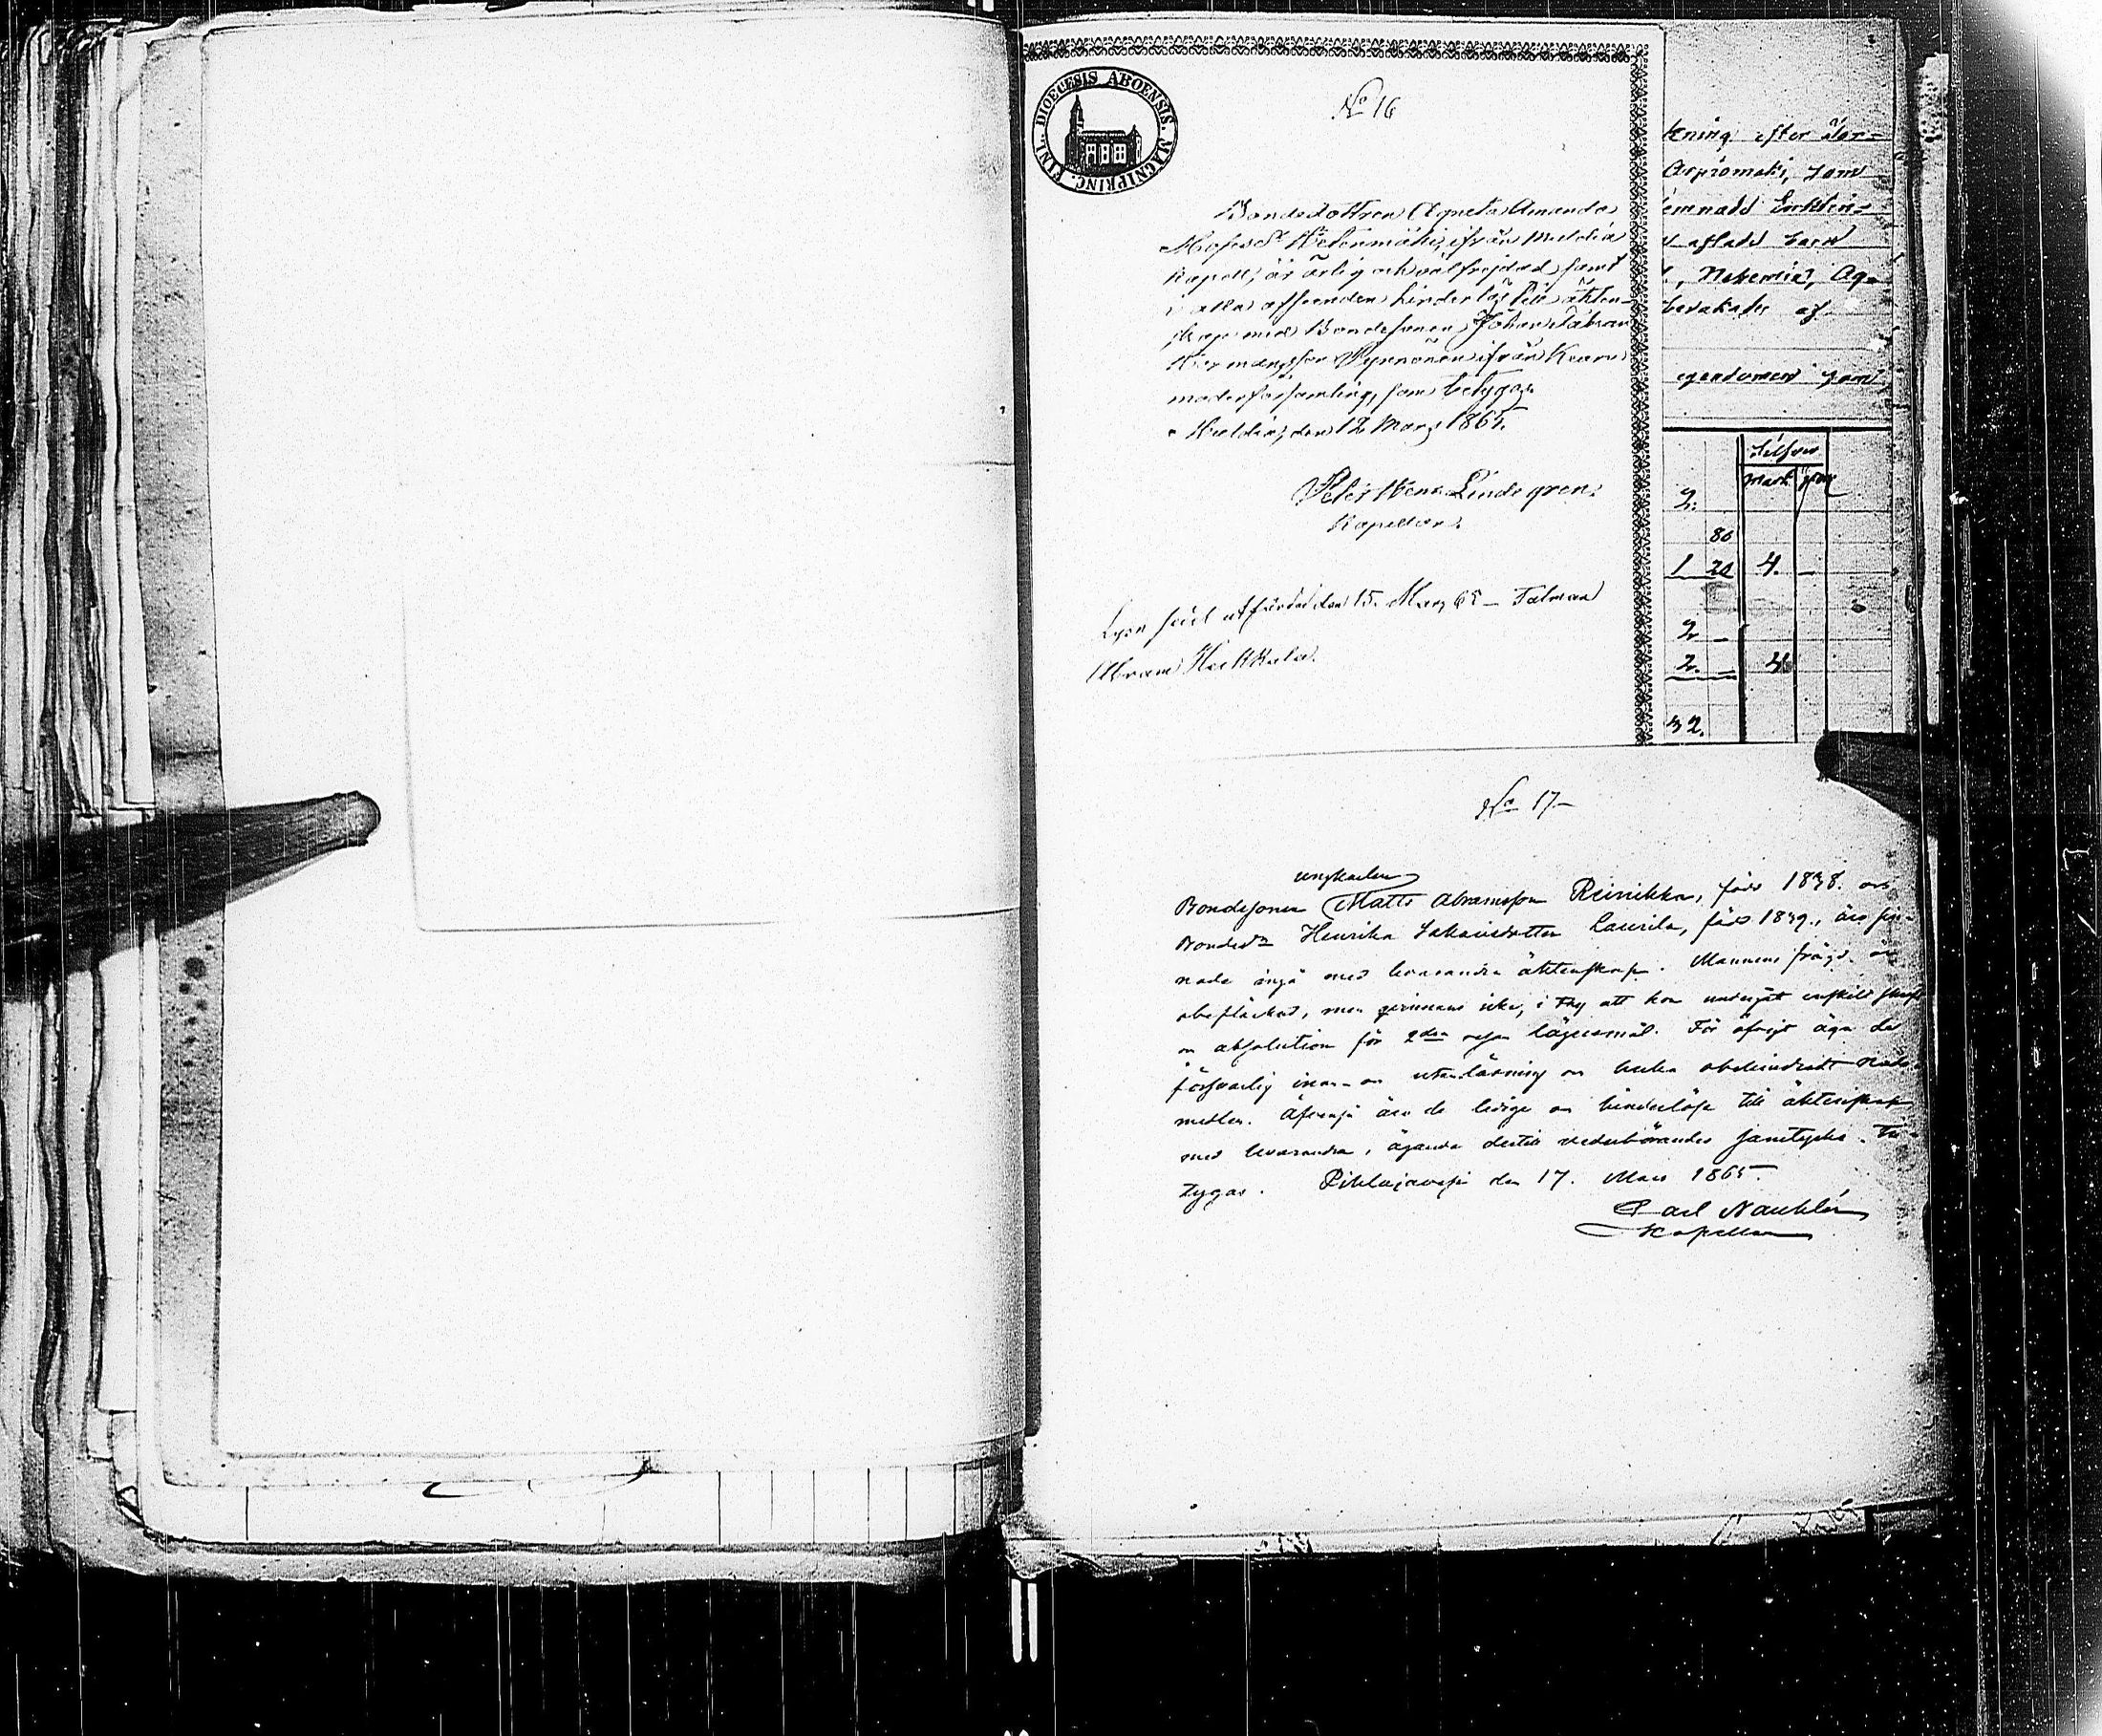 DIOECESIS ABOENSIS. MAGNI PRINC. FINL.
No 16
Bondedottren Agneta Amanda
Moses dr Hietenmäki, ifrån Muldia
Kapell, är ärlig och välfrejdad samt
i alla afseenden hinderlös till äkten-
skap med Bondesonen Johan
Hermansson Pynnönen ifrån
moderförsamling, som betygas.
Muldia, den 12 Mars 1865.
Peter Lindegren.
Kapellan.
Lysn sedel utfärdad den 15 Mars 65 - Talman
Abram Heikkula.
kning efter
Arpiomäki, som
emnade Enklin-
aflade barn
, Nehemia, Ag-
bevakades af
egendomen som
Silfver
Mark
2.
80
1 20 4. -
2 -
2. - 4
32.
No 17
ungkarlen
Bondesonen Matts Abramsson Reinikka, född 1838. och
Bonded:r Henrika Sakarisdotter Laurila, född 1839., äro sin-
nade ingå med hvarandra äktenskap. Mannens frägd är
obefläckad, men qvinnans icke, i ty att hon undergått enskilt skrift
och absolution för 2dra resan lägersmål. För öfrigt äga de
försvarlig innan- och utanläsning och bruka obehindradt nåde-
medlen. Äfvenså äro de lediga och hinderlösa till äktenskap
med hvarandra, ägande dertill vederbörandes samtycke. Be-
tygar. Pihlajavesi den 17. Mars 1865.
Carl Nauklér
Kapellan